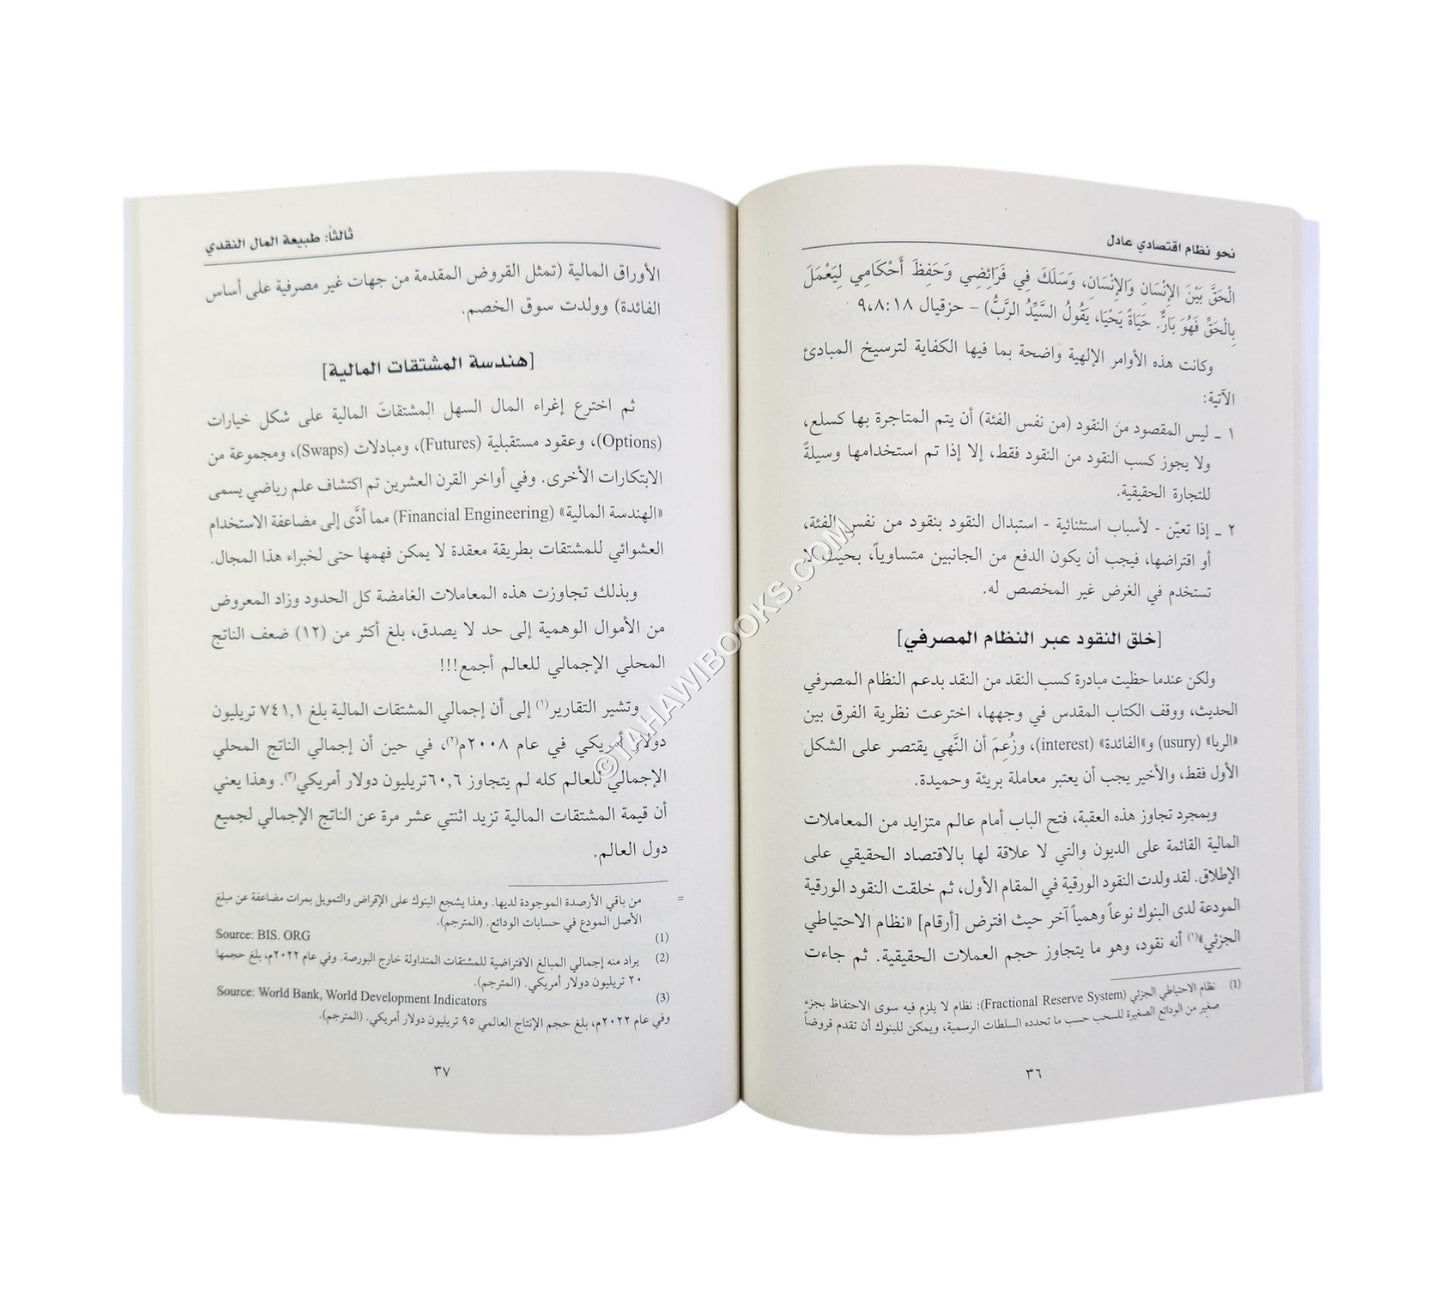 نحو نظام اقتصادي عادل
الْحَقَّ بَيْنَ الإِنْسَانِ وَالإِنْسَانِ، وَسَلَكَ فِي فَرَائِضِي وَحَفِظَ أَحْكَامِي لِيَعْمَلَ
بِالْحَقِّ فَهُوَ بَارٌّ. حَيَاةً يَحْيَا، يَقُولُ السَّيِّدُ الرَّبُّ) – حزقيال ١٨:٩،٨
وكانت هذه الأوامر الإلهية واضحة بما فيها الكفاية لترسيخ المبادئ
الآتية:
١ ـ ليس المقصود من النقود (من نفس الفئة) أن يتم المتاجرة بها كسلع،
ولا يجوز كسب النقود من النقود فقط، إلا إذا تم استخدامها وسيلةً
للتجارة الحقيقية.
٢ ـ إذا تعيّن - لأسباب استثنائية - استبدال النقود بنقود من نفس الفئة،
أو اقتراضها، فيجب أن يكون الدفع من الجانبين متساوياً، بحيث لا
تستخدم في الغرض غير المخصص له.
[خلق النقود عبر النظام المصرفي]
ولكن عندما حظيت مبادرة كسب النقد من النقد بدعم النظام المصرفي
الحديث، ووقف الكتاب المقدس في وجهها، اخترعت نظرية الفرق بين
«الربا» (usury) و«الفائدة» (interest)، وزُعِمَ أن النَّهي يقتصر على الشكل
الأول فقط، والأخير يجب أن يعتبر معاملة بريئة وحميدة.
وبمجرد تجاوز هذه العقبة، فتح الباب أمام عالم متزايد من المعاملات
المالية القائمة على الديون والتي لا علاقة لها بالاقتصاد الحقيقي على
الإطلاق. لقد ولدت النقود الورقية في المقام الأول، ثم خلقت النقود الورقية
المودعة لدى البنوك نوعاً وهمياً آخر حيث افترض [أرقام] «نظام الاحتياطي
الجزئي»(١) أنه نقود، وهو ما يتجاوز حجم العملات الحقيقية. ثم جاءت
(١) نظام الاحتياطي الجزئي (Fractional Reserve System): نظام لا يلزم فيه سوى الاحتفاظ بجزء
صغير من الودائع الصغيرة للسحب حسب ما تحدده السلطات الرسمية، ويمكن للبنوك أن تقدم قروضاً
٣٦
ثالثاً: طبيعة المال النقدي
الأوراق المالية (تمثل القروض المقدمة من جهات غير مصرفية على أساس
الفائدة) وولدت سوق الخصم.
[هندسة المشتقات المالية]
ثم اخترع إغراء المال السهل المشتقاتَ المالية على شكل خيارات
(Options)، وعقود مستقبلية (Futures)، ومبادلات (Swaps)، ومجموعة من
الابتكارات الأخرى. وفي أواخر القرن العشرين تم اكتشاف علم رياضي يسمى
«الهندسة المالية» (Financial Engineering) مما أدَّى إلى مضاعفة الاستخدام
العشوائي للمشتقات بطريقة معقدة لا يمكن فهمها حتى لخبراء هذا المجال.
وبذلك تجاوزت هذه المعاملات الغامضة كل الحدود وزاد المعروض
من الأموال الوهمية إلى حد لا يصدق، بلغ أكثر من (١٢) ضعف الناتج
المحلي الإجمالي للعالم أجمع!!!
وتشير التقارير(١) إلى أن إجمالي المشتقات المالية بلغ ٧٤١,١ تريليون
دولار أمريكي في عام ٢٠٠٨م(٢)، في حين أن إجمالي الناتج المحلي
الإجمالي للعالم كله لم يتجاوز ٦٠,٦ تريليون دولار أمريكي(٣). وهذا يعني
أن قيمة المشتقات المالية تزيد اثنتي عشر مرة عن الناتج الإجمالي لجميع
دول العالم.
= من باقي الأرصدة الموجودة لديها. وهذا يشجع البنوك على الإقراض والتمويل بمرات مضاعفة عن مبلغ
الأصل المودع في حسابات الودائع. (المترجم).
(1) Source: BIS. ORG
(2) يراد منه إجمالي المبالغ الافتراضية للمشتقات المتداولة خارج البورصة. وفي عام ٢٠٢٢م، بلغ حجمها
٢٠ تريليون دولار أمريكي. (المترجم).
(3) Source: World Bank, World Development Indicators
وفي عام ٢٠٢٢م، بلغ حجم الإنتاج العالمي ٩٥ تريليون دولار أمريكي. (المترجم).
٣٧
©TAHAWIBOOKS.COM